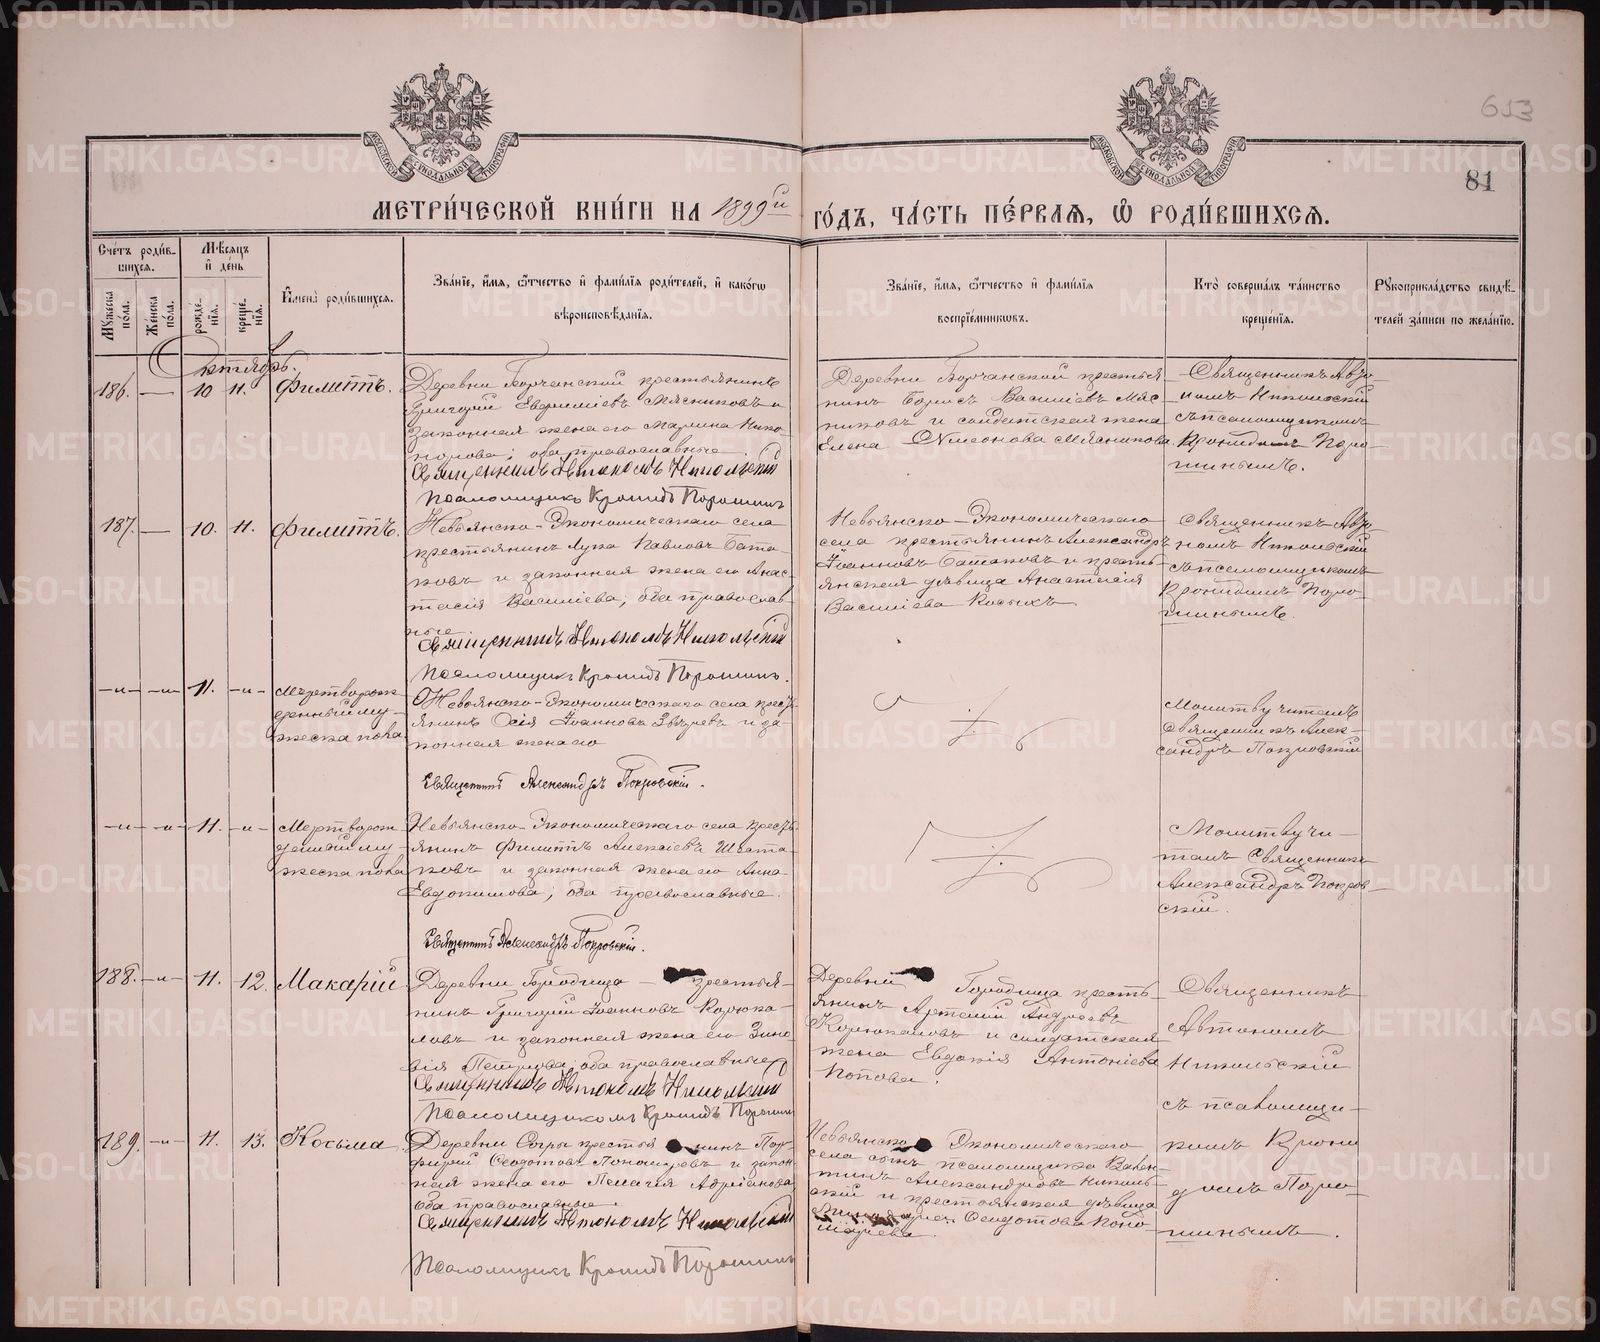 653
81
МЕТРИ́ЧЕСКОЙ КНИ́ГИ НА 1899й ГО́ДЪ, ЧА́СТЬ ПЕ́РВАЯ, Ѡ҆ РОДИ́ВШИХСѦ.
Сче́тъ роди́в-
шихся.
Мѣ́сяцъ
и҆ де́нь
Мꙋ́жеска
по́ла.
Же́нска
по́ла.
рожде́-
нїя.
креще́-
нїя.
И҆мена̀ роди́вшихся.
Зва́нїе, и҆́мя, ѻ҆́тчество и҆ фамі́лїя роди́телей, и҆ како́гѡ
вѣроисповѣ́данїя.
Зва́нїе, и҆́мя, ѻ҆́тчество и҆ фамі́лїя
воспрїе́мниковъ.
Кто̀ соверша́лъ та́инство
креще́нїя.
Рꙋкоприкла́дство свидѣ́-
телей за́писи по жела́нїю.
Октябрь.
186. — 10 11. Филиппъ.
Деревни Борчанской крестьянинъ
Григорій Евфиміевъ Мясниковъ и
законная жена его Марина Ника-
норова; оба православные.
Священникъ Автономъ Никольскій
Псаломщикъ Кронидъ Порошинъ
Деревни Борчанской крестья
нинъ Борисъ Василіевъ Мяс
никовъ и солдатская жена
Елена Симеонова Мясникова
Священникъ Авто
номъ Никольскій
съ псаломщикомъ
Кронидомъ Поро-
шинымъ.
187. — 10. 11. Филиппъ.
Невьянско-Экономическаго села
крестьянинъ Лука Павловъ Бата-
ковъ и законная жена его Анас-
тасія Василіева; оба православ-
ные.
Священникъ Автономъ Никольскій
Псаломщикъ Кронидъ Порошинъ.
Невьянско-Экономическаго
села крестьянинъ Александръ
Іоанновъ Батаковъ и кресть-
янская дѣвица Анастасія
Василіева Косыхъ
Священникъ Авто
номъ Никольскій
съ псаломщикомъ
Кронидомъ Поро-
шинымъ.
—„— —„— 11. —„—
Мертворож
денный му-
жеска пола
Невьянско-Экономическаго села крест
янинъ Осія Іоанновъ Звѣревъ и за-
конная жена его
Священникъ Александръ Покровскій.
Молитву читалъ
Священникъ Алек-
сандръ Покровскій
—„— —„— 11. —„—
Мертворож
денный му-
жеска пола
Невьянско-Экономическаго села крест
янинъ Филиппъ Алексіевъ Шеста-
ковъ и законная жена его Анна
Евдокимова; оба православные.
Священникъ Александръ Покровскій.
Молитву чи-
талъ Священникъ
Александръ Покров-
скій.
188. —„— 11. 12. Макарій
Деревни Городища — крестья-
нинъ Григорій Іоанновъ Корюка-
ловъ и законная жена его Зино-
вія Петрова; оба православные
Священникъ Автономъ Никольскій
Псаломщикомъ Кронидъ Порошинъ
Деревни Городища кресть-
янинъ Артемій Андреевъ
Корюкаловъ и солдатская
жена Евдокія Антоніева
Попова.
Священникъ
Автономъ
Никольскій
съ псаломщи-
комъ Крони
домъ Поро-
шинымъ.
189. —„— 11. 13. Косьма.
Деревни Согры крестья нинъ Пор-
фирій Ѳеодотовъ Пономаревъ и закон-
ная жена его Пелагія Адріанова
оба православные
Священникъ Автономъ Никольскій
Псаломщикъ Кронидъ Порошинъ
Невьянско Экономическаго
села сынъ псаломщика Вален-
тинъ Александровъ Николь-
скій и крестьянская дѣвица
Ѳеодотова Поно
марева.